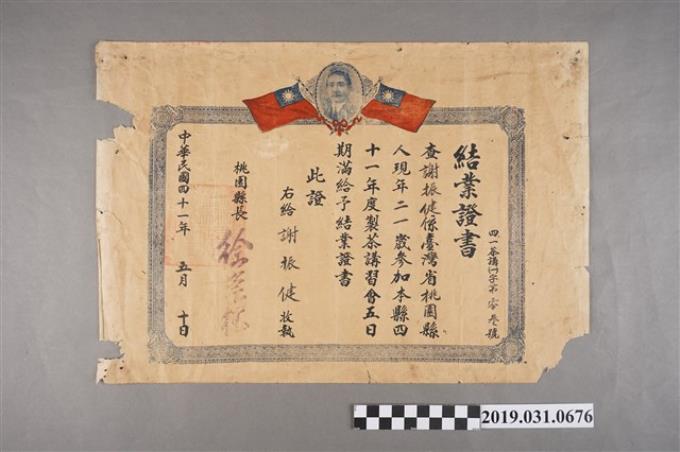 結業證書
四一茶講州字第零叁號
查謝振健係臺灣省桃園縣
人現年二一歲參加本縣四
十一年度製茶講習會五日
期滿給予結業證書
此證
右給謝振健收執
桃園縣長
徐崇德
中華民國四十一年五月十日
2019.031.0676